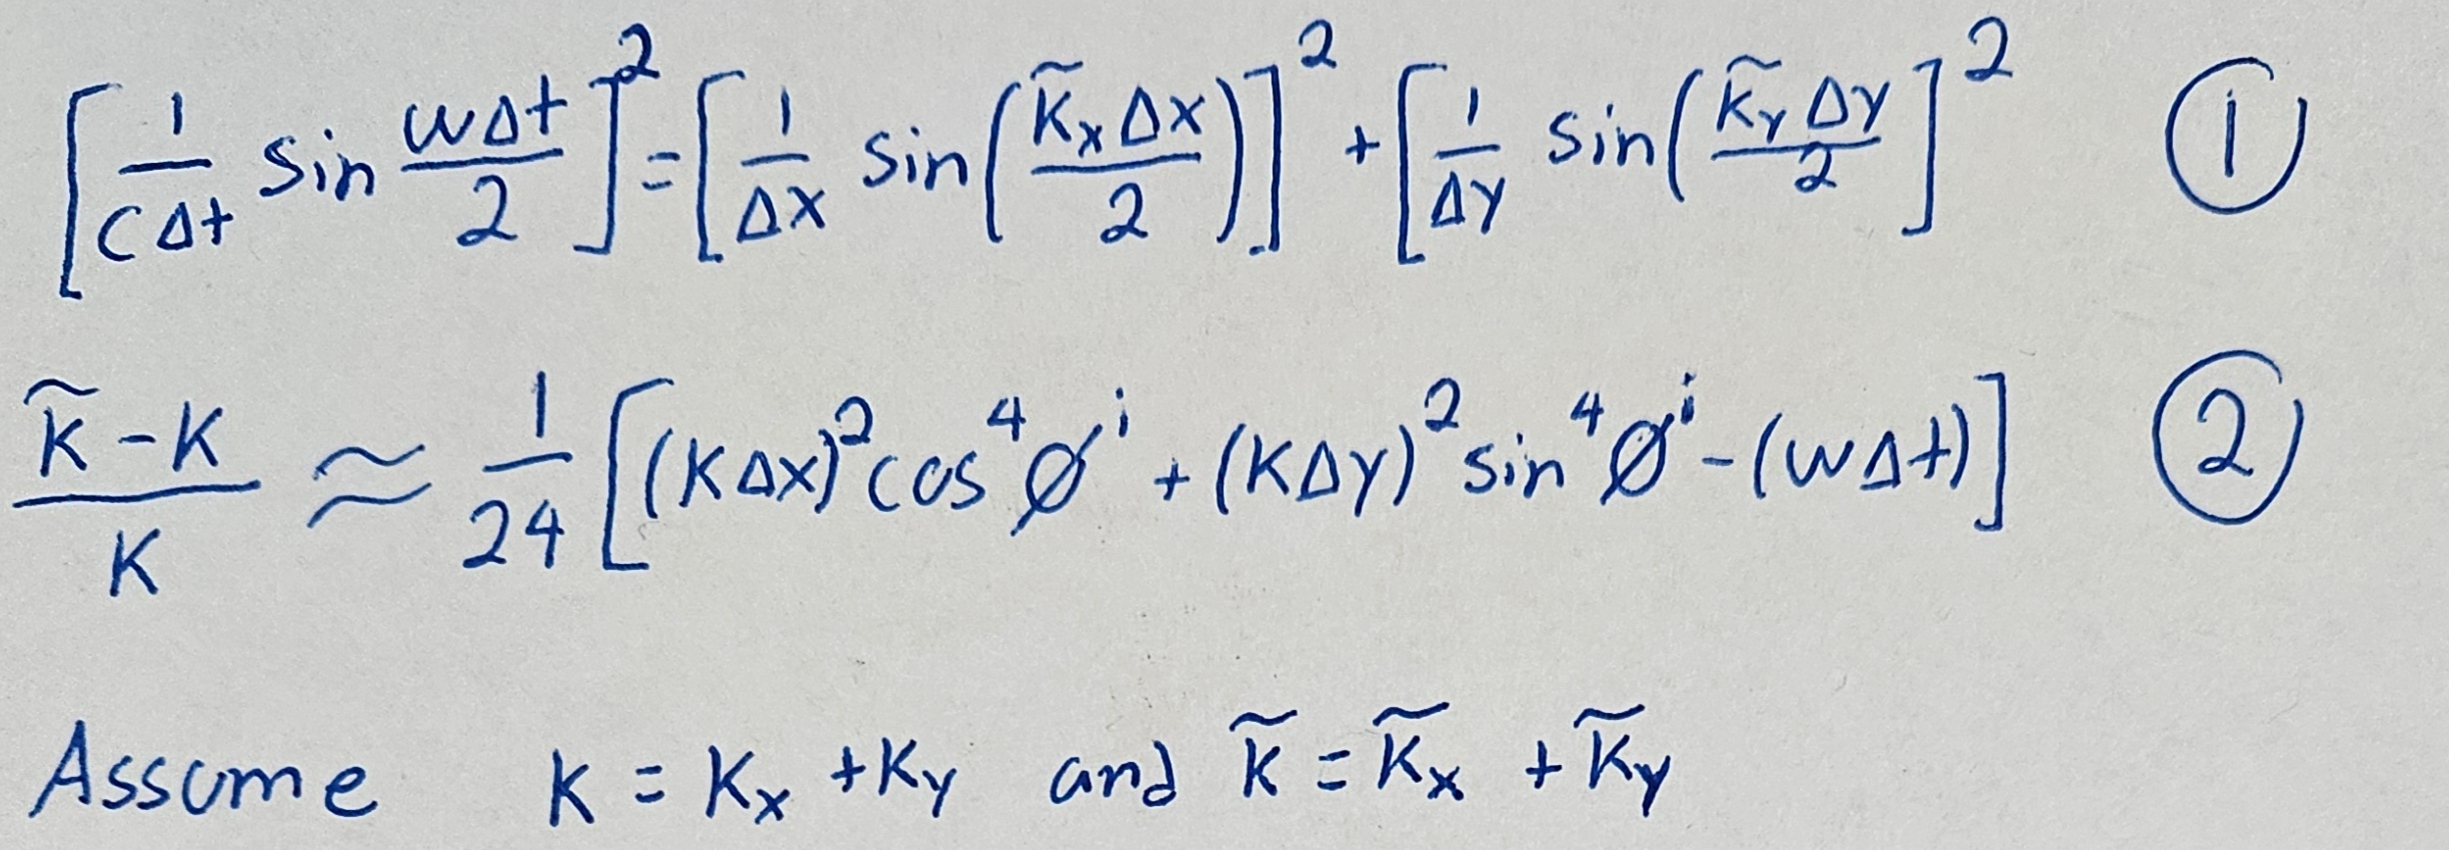 [1/(cΔt) sin ωΔt/2]² = [1/Δx sin(k̃ₓΔx/2)]² + [1/Δy sin(k̃ᵧΔy/2]² ①
(k̃-k)/k ≈ 1/24 [(kΔx)² cos⁴øⁱ + (kΔy)² sin⁴øⁱ - (ωΔt)] ②
Assume k = kₓ + kᵧ and k̃ = k̃ₓ + k̃ᵧ